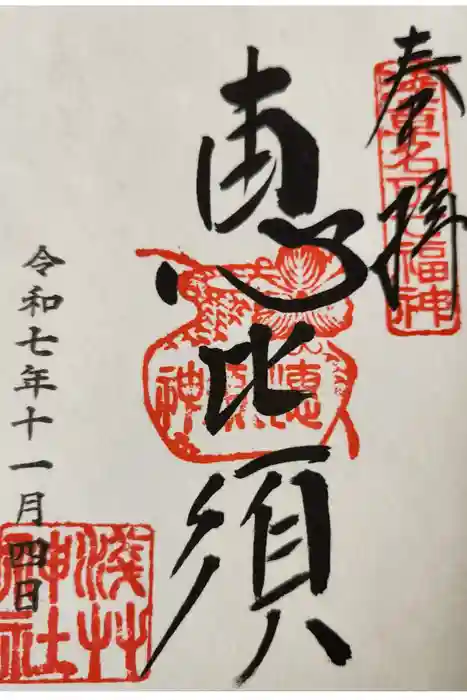 奉拝
浅草名所七福神
恵比須
恵比須神
令和七年十一月四日
浅草神社